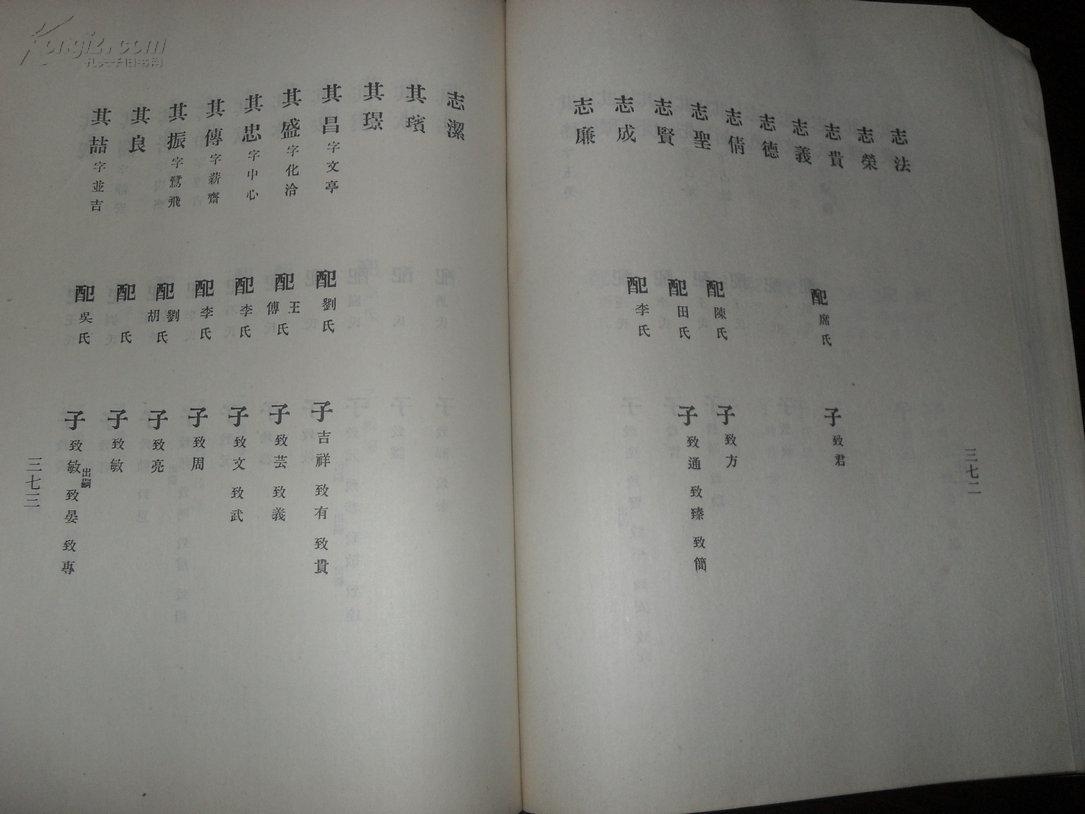 三七二
志法
志榮
志貴 配席氏 子 致君
志義
志德
志倩 配陳氏 子 致方
志聖 配田氏 子 致通 致臻 致簡
志賢 配李氏
志成
志廉
志潔
其璸
其璟
其昌 字文亭 配劉氏 子 吉祥 致有 致貴
其盛 字化洽 配王傅氏 子 致芸 致義
其忠 字中心 配李氏 子 致文 致武
其傳 字薪齋 配李氏 子 致周
其振 字鷺飛 配劉胡氏 子 致亮
其良 配 氏 子 致敏
其喆 字並吉 配吳氏 子 致敏出嗣 致晏 致專
三七三
Kongfz.com
孔夫子旧书网